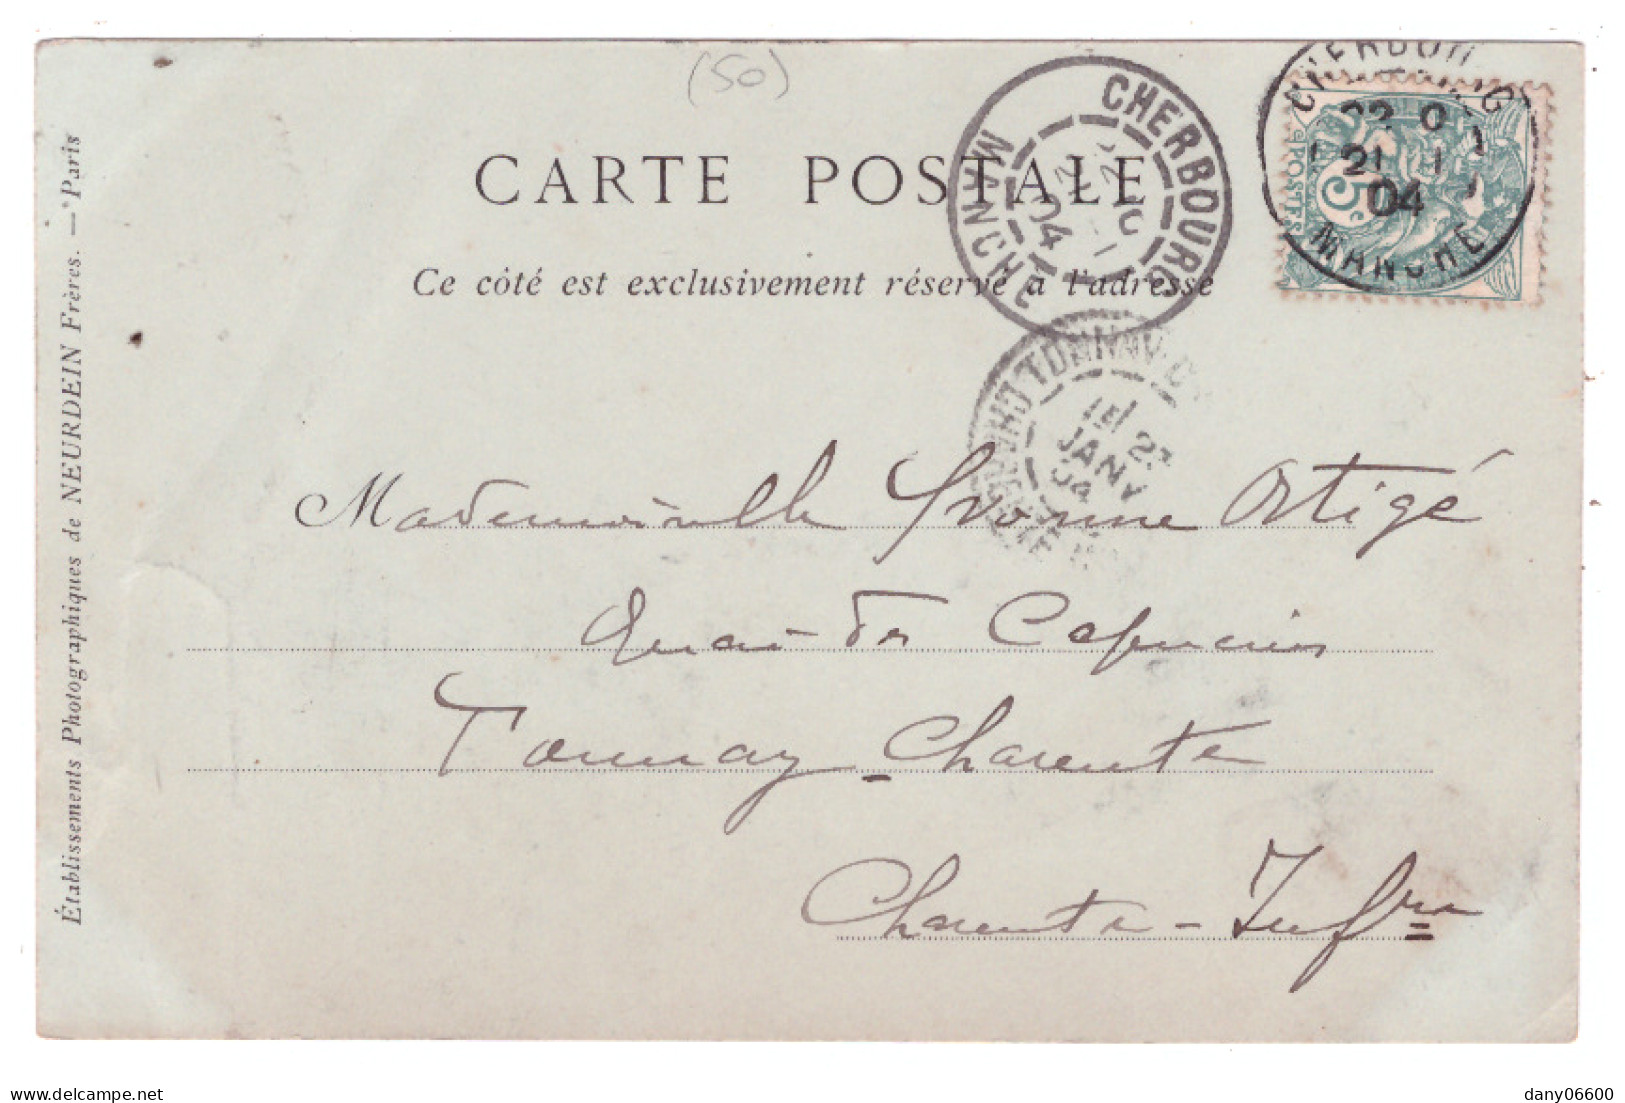 (50)
CARTE POSTALE
Ce côté est exclusivement réservé à l'adresse
CHERBOURG
MANCHE
04
CHERBOURG
21
04
MANCHE
5c
POSTES
TONNAY-CH
JANV
04
Mademoiselle Yvonne Ortigé
Quai des Capucins
Tonnay-Charente
Charente-Infre
Établissements Photographiques de NEURDEIN Frères. — Paris
www.delcampe.net
dany06600